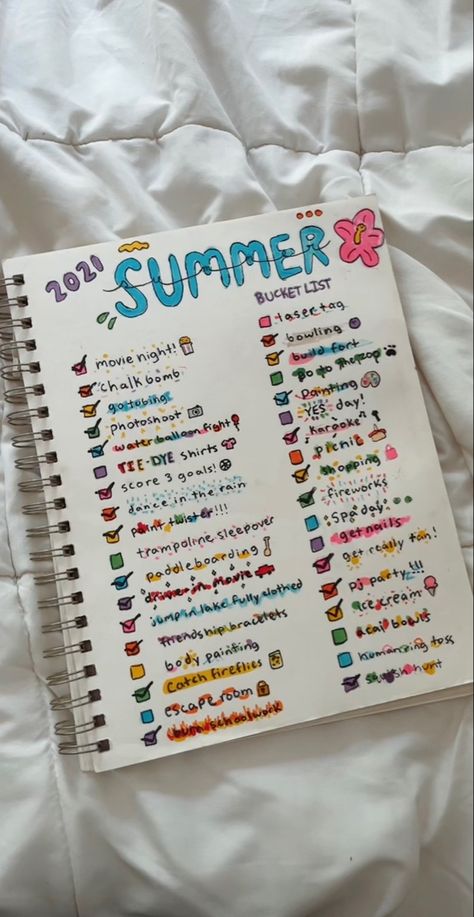 2021
SUMMER
BUCKET LIST
movie night!
chalk bomb
go tubing
photoshoot
water balloon fight
TIE-DYE shirts
score 3 goals!
dance in the rain
paint twister!!!
trampoline sleepover
paddle boarding
drive in movie
jump in lake fully clothed
friendship bracelets
body painting
catch fireflies
escape room
burn schoolwork
laser tag
bowling
build fort
go to the zoo
Painting
YES day!
karaoke
picnic
shopping
fireworks
spa day
get nails
get really tan!
pj party!!!
ice cream
acai bowls